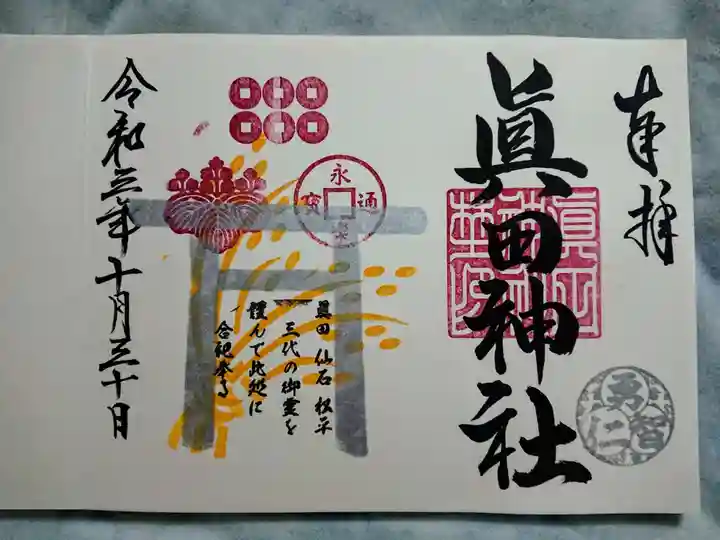 奉拝
眞田神社
智
仁
勇
永
通
寳
眞田 仙石 松平
三代の御霊を
謹んで此処に
合祀奉る
令和三年十月三十日